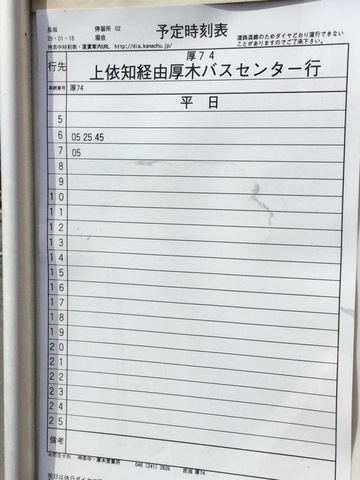 長坂 停留所 02 予定時刻表
29-01-16 現在
神奈中時刻表・運賃案内URL http://dia.kanachu.jp/
道路混雑のためダイヤどおり運行できない
ことがありますのでご了承下さい。
行先 厚74
上依知経由厚木バスセンター行
系統番号 厚74
平 日
5
6 05 25 45
7 05
8
9
10
11
12
13
14
15
16
17
18
19
20
21
22
23
24
25
備考
お問合せ先 神奈中・厚木営業所 046 (241) 2626 担当 厚74